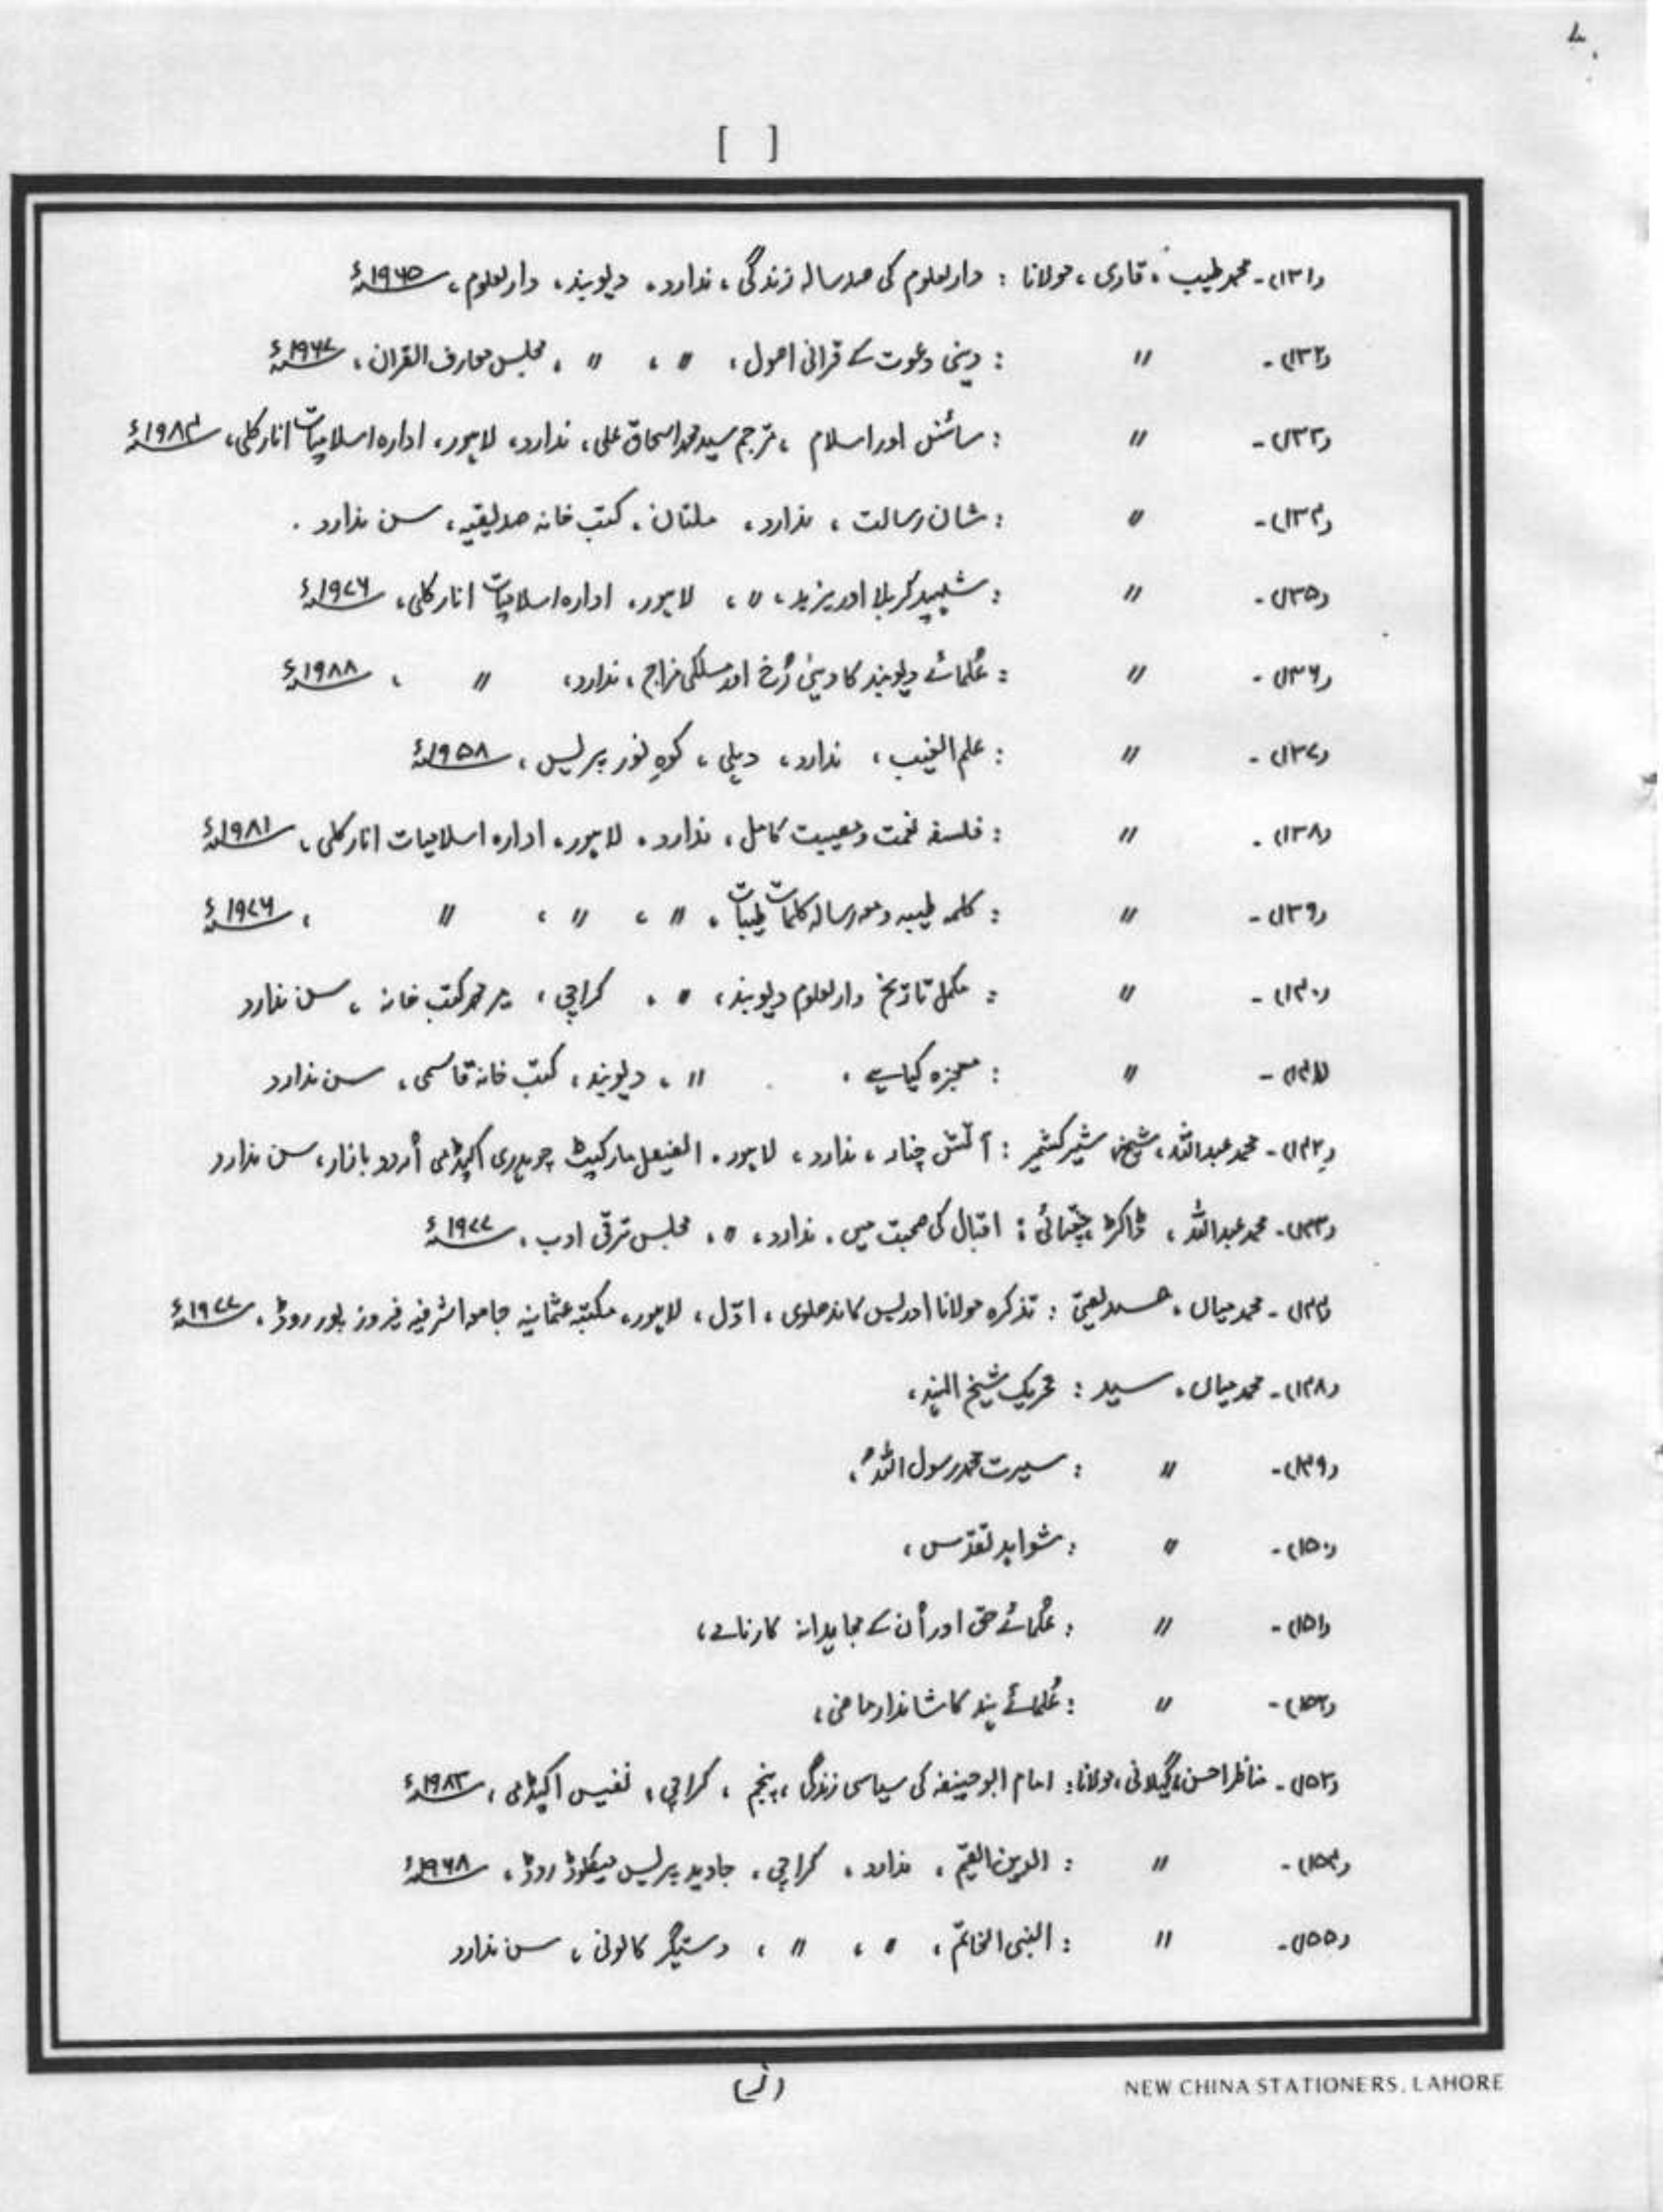 [ ]
(۱۳۱)۔ محمد طیب، قاری، مولانا : دارلعلوم کی صد سالہ زندگی، ندارد، دیوبند، دارلعلوم، ۱۹۶۵ء
(۱۳۲)۔ " : دینی دعوت کے قرانی اصول، " ، " ، مجلس معارف القران،
(۱۳۳)۔ " : سائنس اور اسلام، مترجم سید محمد اسحاق علی، ندارد، لاہور، ادارہ اسلامیات انارکلی،
(۱۳۴)۔ " : شان رسالت، ندارد، ملتان، کتب خانہ صدیقیہ، سن ندارد۔
(۱۳۵)۔ " : شہید کربلا اور یزید، "، لاہور، ادارہ اسلامیات انارکلی، ۱۹۷۶ء
(۱۳۶)۔ " : عُلمائے دیوبند کا دینی رُخ اور مسلکی مزاج، ندارد، " ، ۱۹۸۸ء
(۱۳۷)۔ " : علم الغیب، ندارد، دہلی، کوہِ نور پریس، ۱۹۵۸ء
(۱۳۸)۔ " : فلسفہ نعمت و مصیبت کامل، ندارد، لاہور، ادارہ اسلامیات انارکلی، ۱۹۸۱ء
(۱۳۹)۔ " : کلمہ طیبہ و معہ رسالہ کلمات طیبات، " ، " ، " ، ۱۹۷۶ء
(۱۴۰)۔ " : مکمل تاریخ دارلعلوم دیوبند، " ، کراچی، میر محمد کتب خانہ، سن ندارد
(۱۴۱)۔ " : معجزہ کیا ہے، " ، دیوبند، کتب خانہ قاسمی، سن ندارد
(۱۴۲)۔ محمد عبداللہ، شیخ، شیر کشمیر : آتش چنار، ندارد، لاہور، الفیصل مارکیٹ چوہدری اکیڈمی اُردو بازار، سن ندارد
(۱۴۳)۔ محمد عبداللہ، ڈاکٹر، چغتائی : اقبال کی صحبت میں، ندارد، "، مجلس ترقی ادب، ۱۹۷۷ء
(۱۴۴)۔ محمد میاں، صدیقی : تذکرہ مولانا ادریس کاندھلوی، اوّل، لاہور، مکتبہ عثمانیہ جامعہ اشرفیہ فیروز پور روڈ، ۱۹۷۷ء
(۱۴۸)۔ محمد میاں، سید : تحریک شیخ الہند،
(۱۴۹)۔ " : سیرت محمد رسول اللہ ؐ،
(۱۵۰)۔ " : شواہد تقدّس،
(۱۵۱)۔ " : عُلمائے حق اور اُن کے مجاہدانہ کارنامے،
(۱۵۲)۔ " : عُلمائے ہند کا شاندار ماضی،
(۱۵۳)۔ مناظر احسن، گیلانی، مولانا : امام ابو حنیفہ کی سیاسی زندگی، پنجم، کراچی، نفیس اکیڈمی، ۱۹۸۳ء
(۱۵۴)۔ " : الدین القیّم، ندارد، کراچی، جاوید پریس میکلوڈ روڈ، ۱۹۶۸ء
(۱۵۵)۔ " : النبی الخاتمؐ، " ، " ، دستگیر کالونی، سن ندارد
NEW CHINA STATIONERS, LAHORE